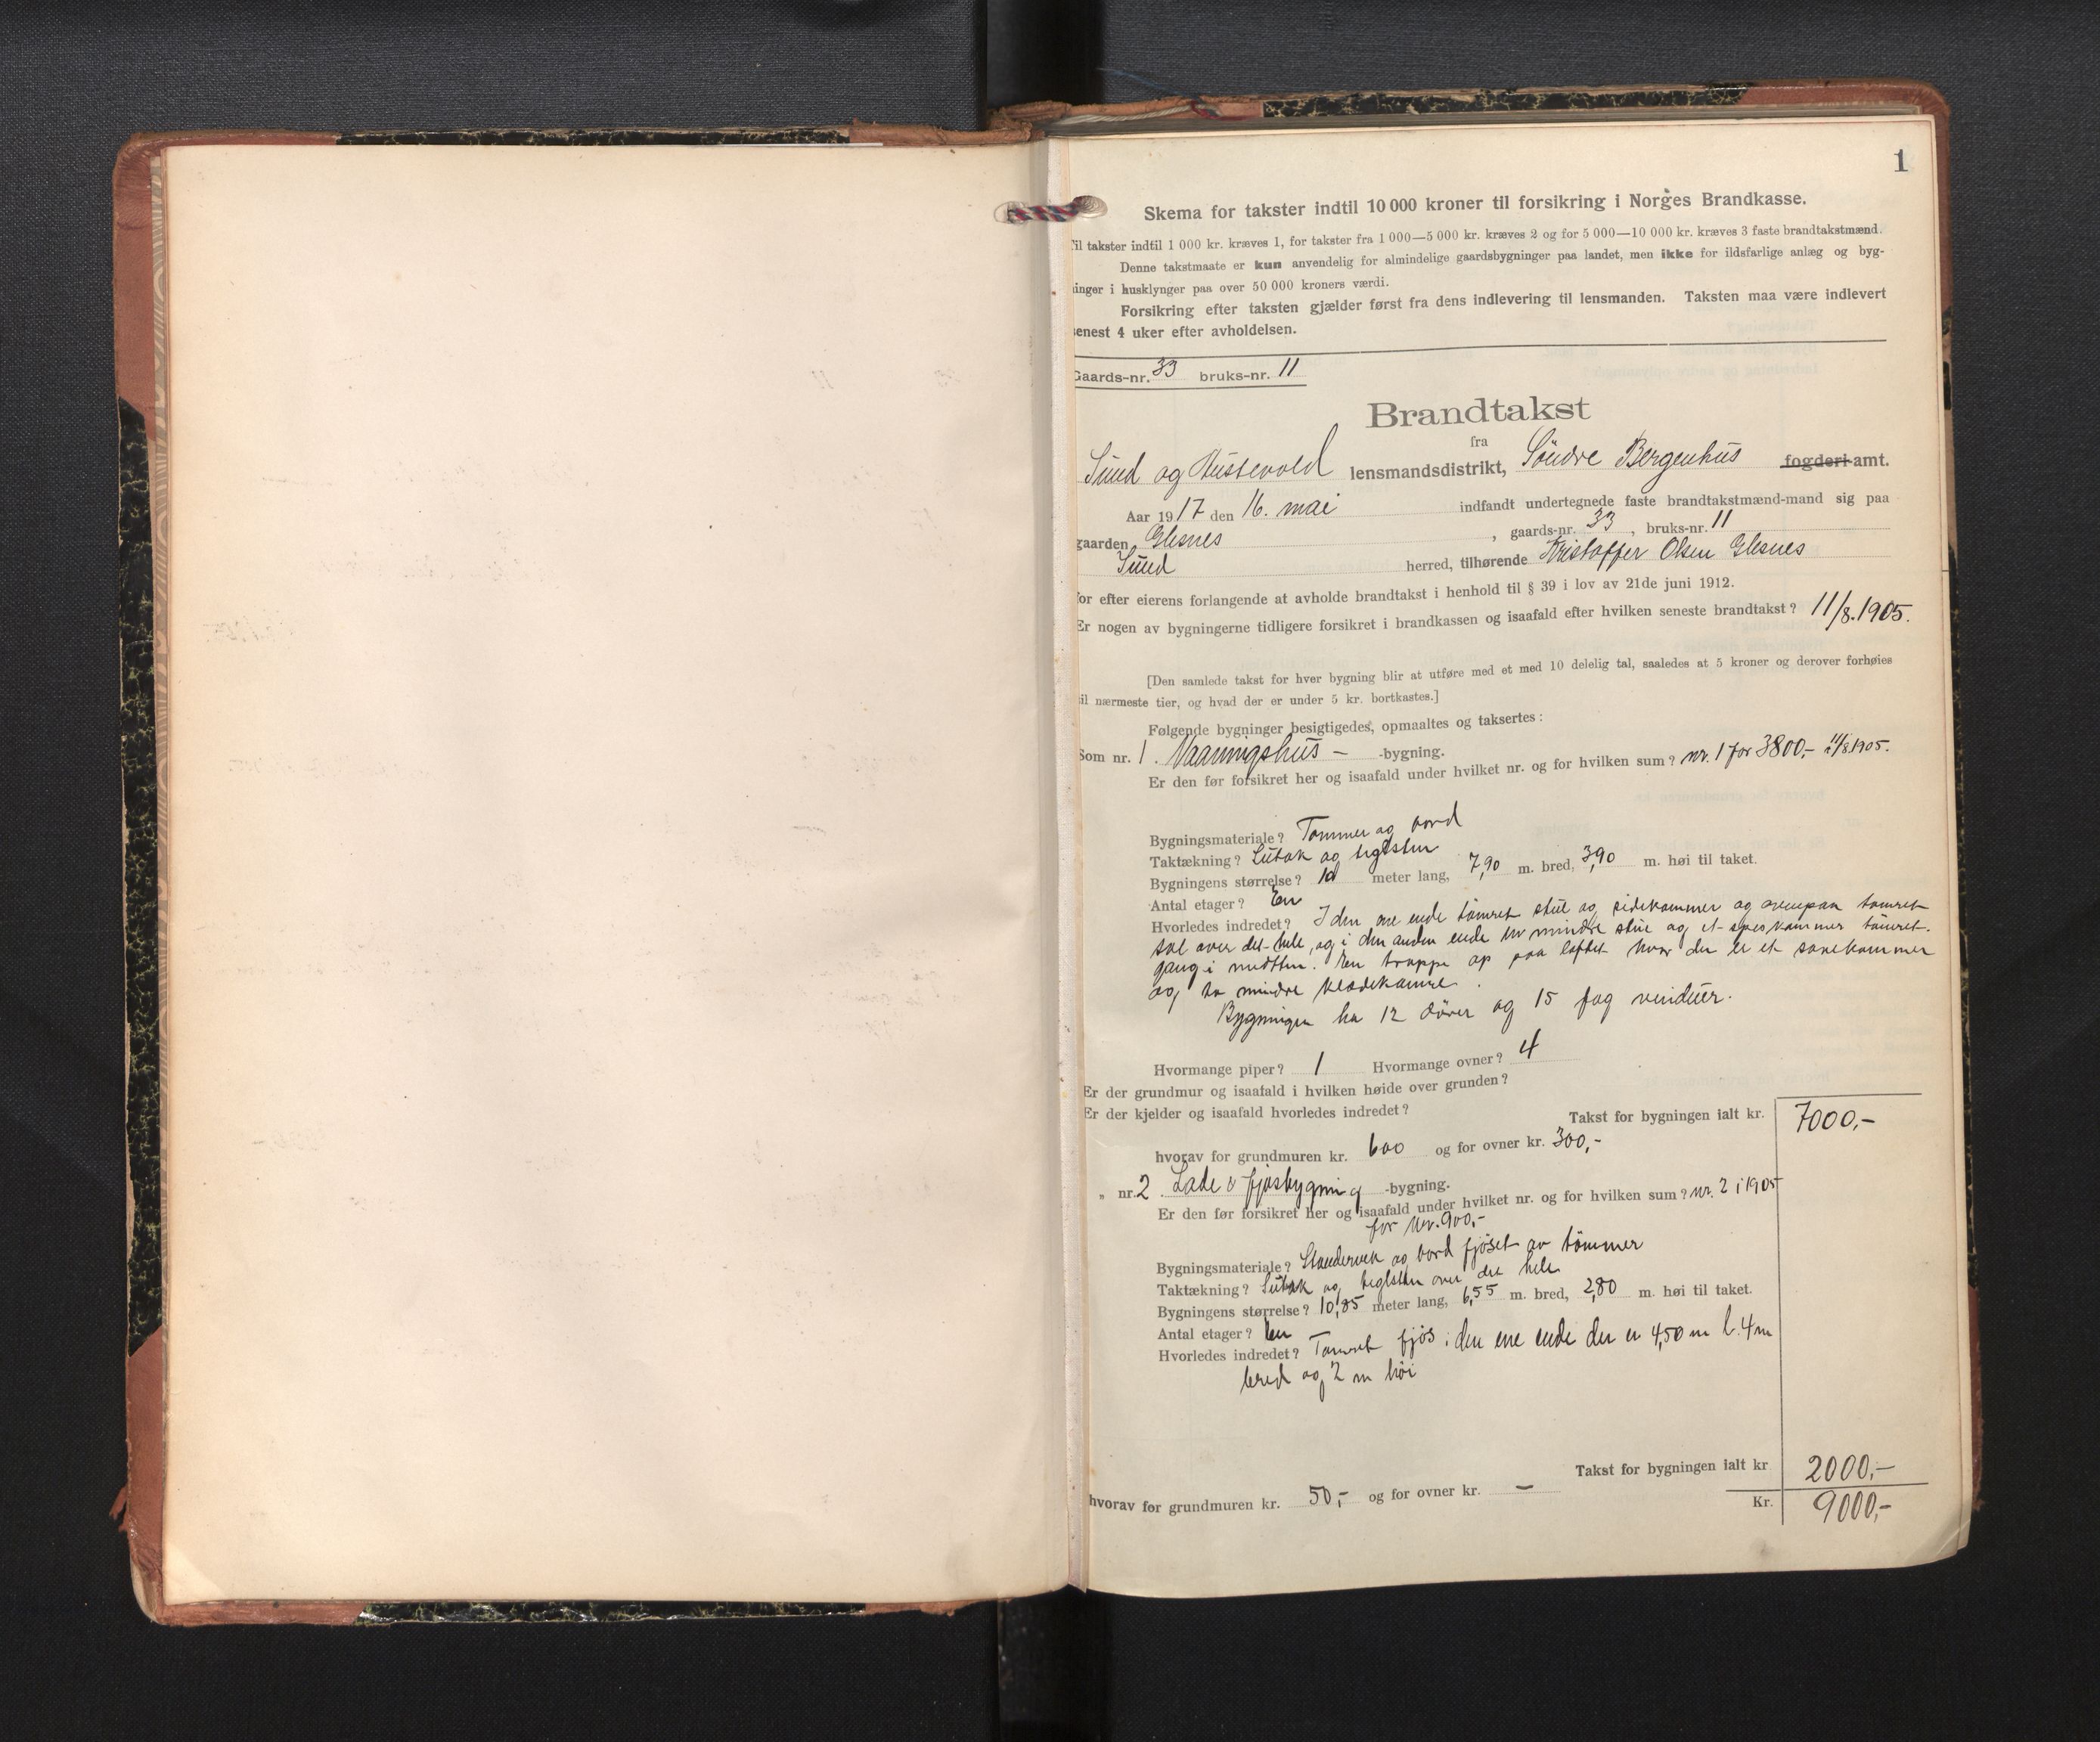 1
Skema for takster indtil 10 000 kroner til forsikring i Norges Brandkasse.
Til takster indtil 1 000 kr. kræves 1, for takster fra 1 000—5 000 kr. kræves 2 og for 5 000—10 000 kr. kræves 3 faste brandtakstmænd.
Denne takstmaate er kun anvendelig for almindelige gaardsbygninger paa landet, men ikke for ildsfarlige anlæg og byg-
ninger i husklynger paa over 50 000 kroners værdi.
Forsikring efter taksten gjælder først fra dens indlevering til lensmanden. Taksten maa være indlevert
senest 4 uker efter avholdelsen.
Gaards-nr. 33 bruks-nr. 11
Brandtakst
fra
Sund og Austevold lensmandsdistrikt, Söndre Bergenhus fogderi-amt.
Aar 1917 den 16. mai indfandt undertegnede faste brandtakstmænd-mand sig paa
gaarden Glesnes, gaards-nr. 33, bruks-nr. 11
Sund herred, tilhørende Kristoffer Olsen Glesnes
for efter eierens forlangende at avholde brandtakst i henhold til § 39 i lov av 21de juni 1912.
Er nogen av bygningerne tidligere forsikret i brandkassen og isaafald efter hvilken seneste brandtakst? 11/8.1905.
[Den samlede takst for hver bygning blir at utføre med et med 10 delelig tal, saaledes at 5 kroner og derover forhøies
til nærmeste tier, og hvad der er under 5 kr. bortkastes.]
Følgende bygninger besigtigedes, opmaaltes og taksertes:
Som nr. 1. Vaaningshus - -bygning.
Er den før forsikret her og isaafald under hvilket nr. og for hvilken sum? nr. 1 for 3800,- 11/8 1905.
Bygningsmateriale? Tømmer og bord
Taktækning? Sutak og teglsten
Bygningens størrelse? 10 meter lang, 7,90 m. bred, 3,90 m. høi til taket.
Antal etager? En
Hvorledes indredet? I den ene ende tömret stue og sidekammer og ovenpaa tömret
sal over det hele, og i den anden ende en mindre stue og et spiskammer tömret.
gang i midten. En trappe op paa loftet hvor der er et sovekammer
og to mindre klædekamre.
Bygningen har 12 dörer og 15 fag vinduer.
Hvormange piper? 1 Hvormange ovner? 4
Er der grundmur og isaafald i hvilken høide over grunden?
Er der kjelder og isaafald hvorledes indredet?
Takst for bygningen ialt kr. 7000,-
hvorav for grundmuren kr. 600 og for ovner kr. 300,-
„ nr. 2. Lade & fjøsbygning -bygning.
Er den før forsikret her og isaafald under hvilket nr. og for hvilken sum? nr. 2 i 1905
for kr. 900,-
Bygningsmateriale? Standerverk og bord fjöset av tömmer
Taktækning? Sutak og teglsten over det hele
Bygningens størrelse? 10,85 meter lang, 6,55 m. bred, 2,80 m. høi til taket.
Antal etager? En
Hvorledes indredet? Tömret fjös i den ene ende der er 4,50 m l. 4 m
bred og 2 m höi
Takst for bygningen ialt kr 2000,-
hvorav for grundmuren kr. 50,- og for ovner kr. -
Kr. 9000,-